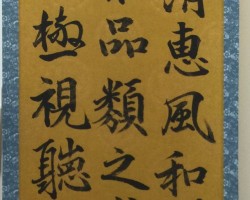 清惠風和
品類之
極視聽